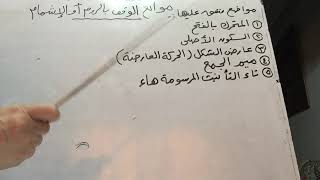 موانع الوقف بالروم أو الإشمام
مواضع متفق عليها
① المتحرك بالفتح
② السكون الأصلى
③ عارض الشكل (الحركة العارضة)
④ ميم الجمع
⑤ تاء التأنيث المرسومة هاء